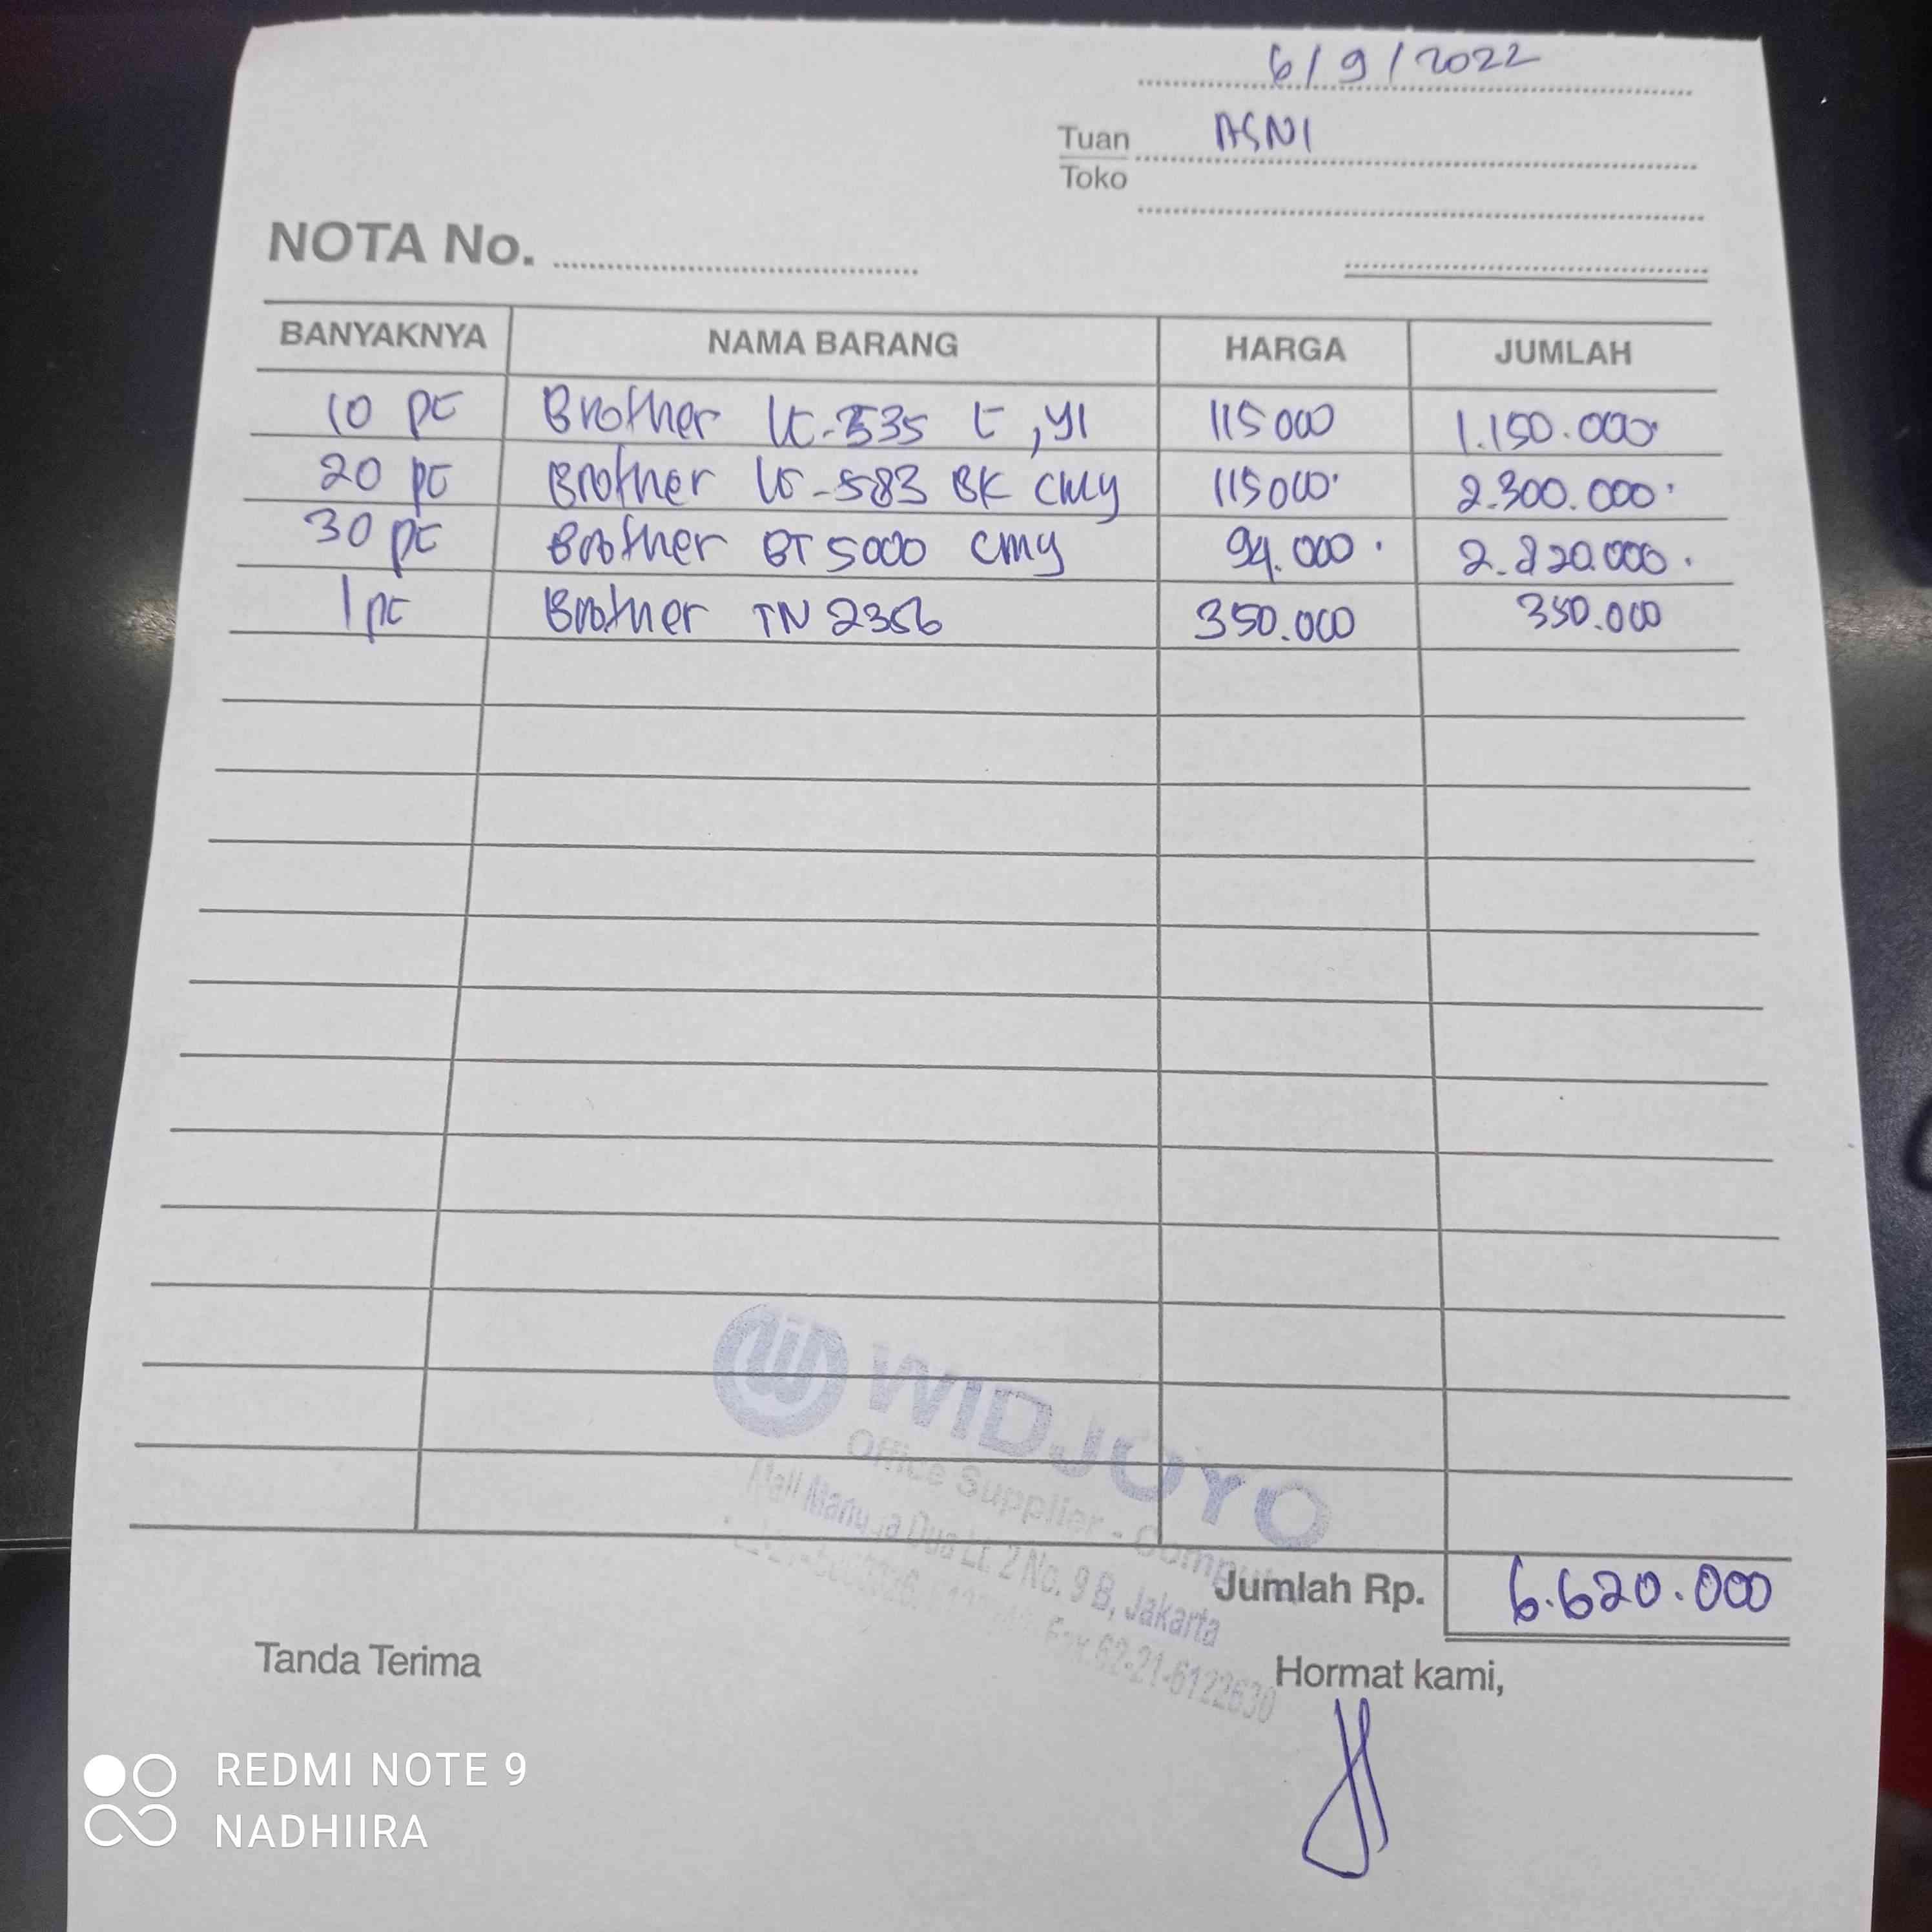 6/9/2022
Tuan ASNI
Toko
NOTA No.
BANYAKNYA NAMA BARANG HARGA JUMLAH
10 pc Brother LC-535 C, Y1 115000 1.150.000
20 pc Brother LC-583 BK CMY 115000 2.300.000
30 pc Brother BT 5000 CMY 94.000 2.820.000
1 pc Brother TN 2356 350.000 350.000
WIDJOYO
Office Supplier -
Mall Dua Lt. 2 No. 9 B, Jakarta
Fax 62-21-6122630
Jumlah Rp. 6.620.000
Tanda Terima Hormat kami,
REDMI NOTE 9
NADHIIRA